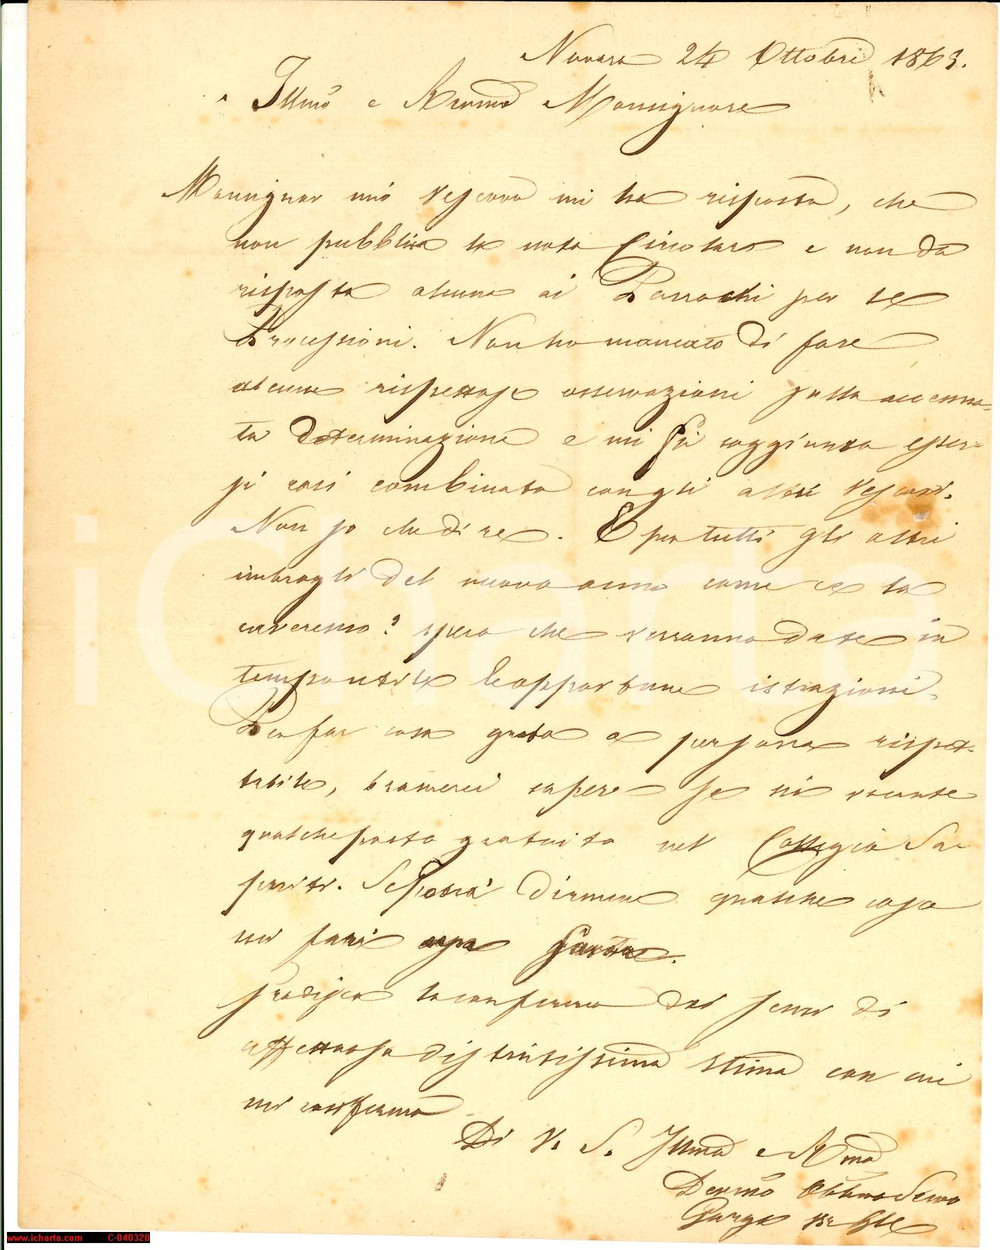 Novara 24 Ottobre 1863.
Illmo e Revmo Monsignore
Monsignor mio Vescovo mi ha risposto, che
non pubblica la nota Circolare e non dà
risposta alcuna ai Parrochi per le
Processioni. Non ho mancato di fare
alcune rispettose osservazioni sulla accenna-
ta determinazione e mi fu soggiunto esser-
si così combinato congli altri Vescovi.
Non so che dire. E per tutti gli altri
imbrogli del nuovo anno come ce la
caveremo? spero che verranno date in
tempo utile le opportune istruzioni.
Per far cosa grata a persona rispet-
tabile, bramerei sapere se sii vacante
qualche posto gratuito nel Collegio
Se potrà dirmene qualche cosa
mi farà cosa grata.
Gradisca la conferma dei sensi di
affettuosa distintissima stima con cui
mi confermo
Di V. S. Illma e Rma
Devmo Obbmo Servo